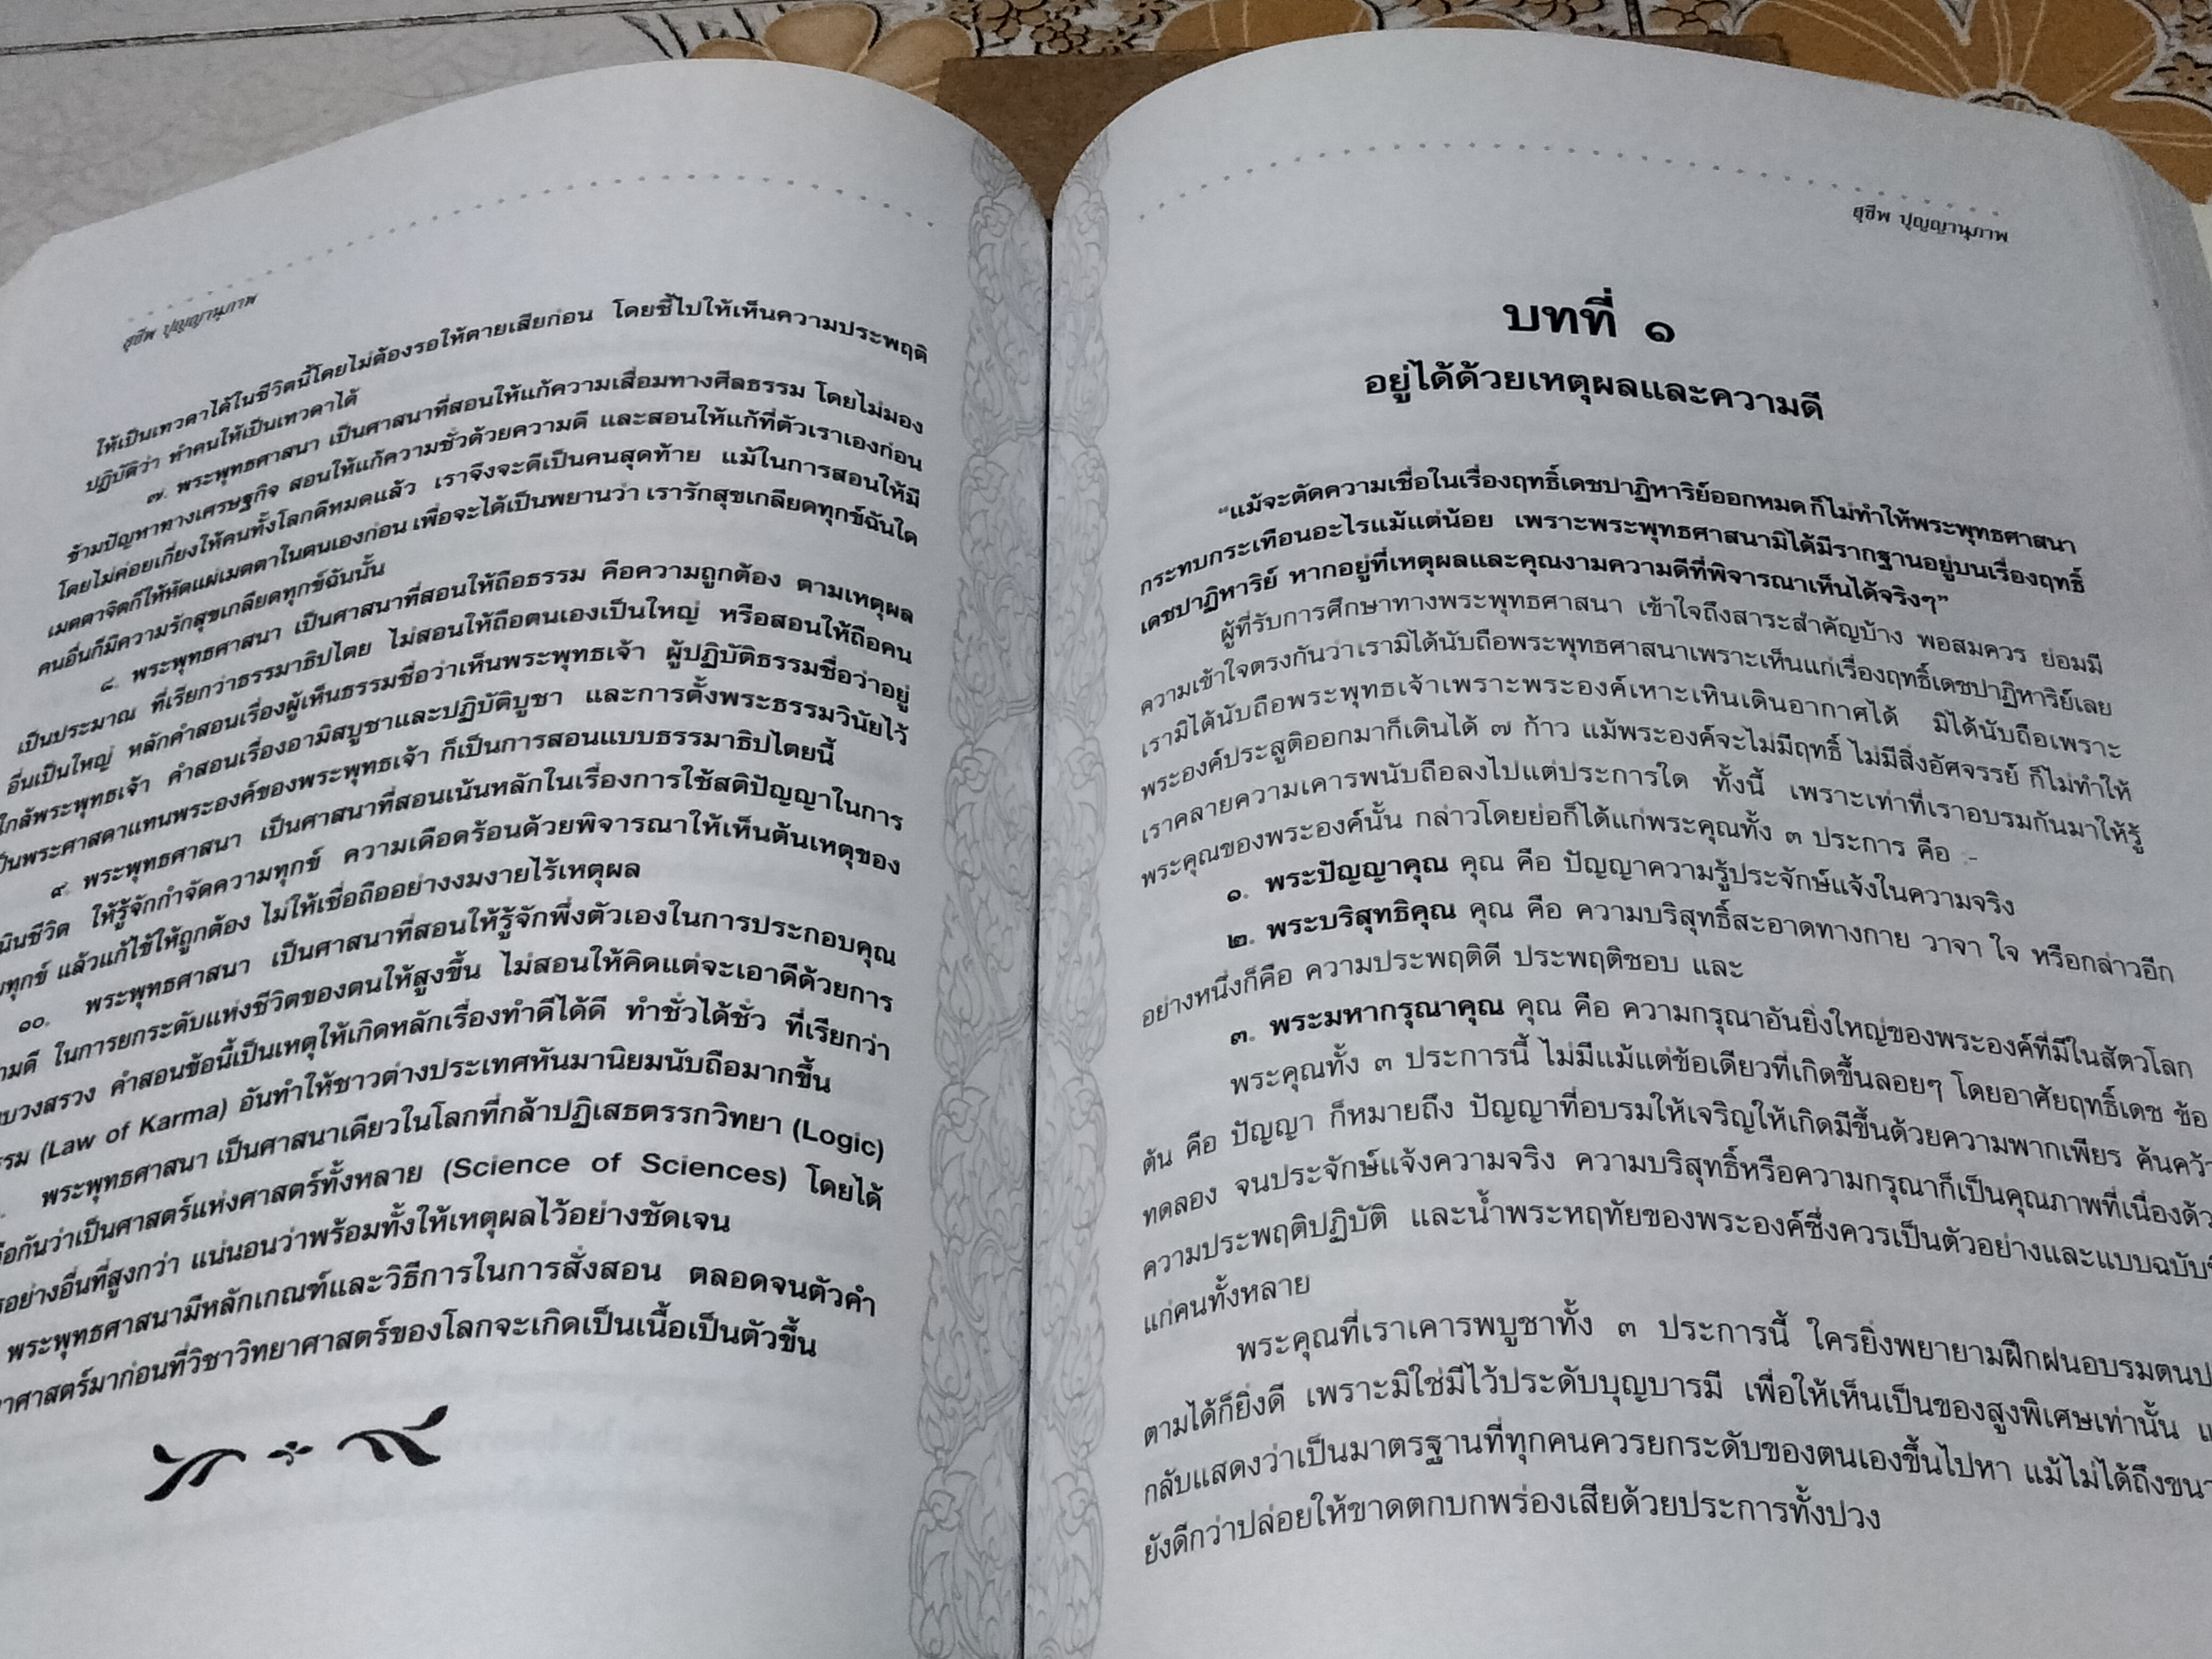 สุชีพ ปุญญานุภาพ
ให้เป็นเทวดาได้ในชีวิตนี้โดยไม่ต้องรอให้ตายเสียก่อน โดยชี้ไปให้เห็นความประพฤติ
ปฏิบัติว่า ทำคนให้เป็นเทวดาได้
๗. พระพุทธศาสนา เป็นศาสนาที่สอนให้แก้ความเสื่อมทางศีลธรรม โดยไม่มอง
ข้ามปัญหาทางเศรษฐกิจ สอนให้แก้ความชั่วด้วยความดี และสอนให้แก้ที่ตัวเราเองก่อน
โดยไม่ค่อยเกี่ยงให้คนทั้งโลกดีหมดแล้ว เราจึงจะดีเป็นคนสุดท้าย แม้ในการสอนให้มี
เมตตาจิตก็ให้หัดแผ่เมตตาในตนเองก่อน เพื่อจะได้เป็นพยานว่า เรารักสุขเกลียดทุกข์ฉันใด
คนอื่นก็มีความรักสุขเกลียดทุกข์ฉันนั้น
๘. พระพุทธศาสนา เป็นศาสนาที่สอนให้ถือธรรม คือความถูกต้อง ตามเหตุผล
เป็นประมาณ ที่เรียกว่าธรรมาธิปไตย ไม่สอนให้ถือตนเองเป็นใหญ่ หรือสอนให้ถือคน
อื่นเป็นใหญ่ หลักคำสอนเรื่องผู้เห็นธรรมชื่อว่าเห็นพระพุทธเจ้า ผู้ปฏิบัติธรรมชื่อว่าอยู่
ใกล้พระพุทธเจ้า คำสอนเรื่องอามิสบูชาและปฏิบัติบูชา และการตั้งพระธรรมวินัยไว้
เป็นพระศาสดาแทนพระองค์ของพระพุทธเจ้า ก็เป็นการสอนแบบธรรมาธิปไตยนี้
๙. พระพุทธศาสนา เป็นศาสนาที่สอนเน้นหลักในเรื่องการใช้สติปัญญาในการ
ชีวิต ให้รู้จักกำจัดความทุกข์ ความเดือดร้อนด้วยพิจารณาให้เห็นต้นเหตุของ
ทุกข์ แล้วแก้ไขให้ถูกต้อง ไม่ให้เชื่อถืออย่างงมงายไร้เหตุผล
๑๐. พระพุทธศาสนา เป็นศาสนาที่สอนให้รู้จักพึ่งตัวเองในการประกอบคุณ
ในการยกระดับแห่งชีวิตของตนให้สูงขึ้น ไม่สอนให้คิดแต่จะเอาดีด้วยการ
บวงสรวง คำสอนข้อนี้เป็นเหตุให้เกิดหลักเรื่องทำดีได้ดี ทำชั่วได้ชั่ว ที่เรียกว่า
(Law of Karma) อันทำให้ชาวต่างประเทศหันมานิยมนับถือมากขึ้น
พระพุทธศาสนา เป็นศาสนาเดียวในโลกที่กล้าปฏิเสธตรรกวิทยา (Logic)
กันว่าเป็นศาสตร์แห่งศาสตร์ทั้งหลาย (Science of Sciences) โดยได้
อย่างอื่นที่สูงกว่า แน่นอนว่าพร้อมทั้งให้เหตุผลไว้อย่างชัดเจน
พระพุทธศาสนามีหลักเกณฑ์และวิธีการในการสั่งสอน ตลอดจนตัวคำ
ศาสตร์มาก่อนที่วิชาวิทยาศาสตร์ของโลกจะเกิดเป็นเนื้อเป็นตัวขึ้น
สุชีพ ปุญญานุภาพ
บทที่ ๑
อยู่ได้ด้วยเหตุผลและความดี
“แม้จะตัดความเชื่อในเรื่องฤทธิ์เดชปาฏิหาริย์ออกหมด ก็ไม่ทำให้พระพุทธศาสนา
กระทบกระเทือนอะไรแม้แต่น้อย เพราะพระพุทธศาสนามิได้มีรากฐานอยู่บนเรื่องฤทธิ์
เดชปาฏิหาริย์ หากอยู่ที่เหตุผลและคุณงามความดีที่พิจารณาเห็นได้จริงๆ”
ผู้ที่รับการศึกษาทางพระพุทธศาสนา เข้าใจถึงสาระสำคัญบ้าง พอสมควร ย่อมมี
ความเข้าใจตรงกันว่า เรามิได้นับถือพระพุทธศาสนาเพราะเห็นแก่เรื่องฤทธิ์เดชปาฏิหาริย์เลย
เรามิได้นับถือพระพุทธเจ้าเพราะพระองค์เหาะเหินเดินอากาศได้ มิได้นับถือเพราะ
พระองค์ประสูติออกมาก็เดินได้ ๗ ก้าว แม้พระองค์จะไม่มีฤทธิ์ ไม่มีสิ่งอัศจรรย์ ก็ไม่ทำให้
เราคลายความเคารพนับถือลงไปแต่ประการใด ทั้งนี้ เพราะเท่าที่เราอบรมกันมาให้รู้
พระคุณของพระองค์นั้น กล่าวโดยย่อก็ได้แก่พระคุณทั้ง ๓ ประการ คือ :-
๑. พระปัญญาคุณ คุณ คือ ปัญญาความรู้ประจักษ์แจ้งในความจริง
๒. พระบริสุทธิคุณ คุณ คือ ความบริสุทธิ์สะอาดทางกาย วาจา ใจ หรือกล่าวอีก
อย่างหนึ่งก็คือ ความประพฤติดี ประพฤติชอบ และ
๓. พระมหากรุณาคุณ คุณ คือ ความกรุณาอันยิ่งใหญ่ของพระองค์ที่มีในสัตวโลก
พระคุณทั้ง ๓ ประการนี้ ไม่มีแม้แต่ข้อเดียวที่เกิดขึ้นลอยๆ โดยอาศัยฤทธิ์เดช ข้อ
ต้น คือ ปัญญา ก็หมายถึง ปัญญาที่อบรมให้เจริญให้เกิดมีขึ้นด้วยความพากเพียร
ทดลอง จนประจักษ์แจ้งความจริง ความบริสุทธิ์หรือความกรุณาก็เป็นคุณภาพที่เนื่อง
ความประพฤติปฏิบัติ และน้ำพระหฤทัยของพระองค์ซึ่งควรเป็นตัวอย่างและแบบฉบับ
แก่คนทั้งหลาย
พระคุณที่เราเคารพบูชาทั้ง ๓ ประการนี้ ใครยิ่งพยายามฝึกฝนอบรมตน
ตามได้ก็ยิ่งดี เพราะมิใช่มีไว้ประดับบุญบารมี เพื่อให้เห็นเป็นของสูงพิเศษเท่านั้น
กลับแสดงว่าเป็นมาตรฐานที่ทุกคนควรยกระดับของตนเองขึ้นไปหา แม้ไม่ได้ถึง
ยังดีกว่าปล่อยให้ขาดตกบกพร่องเสียด้วยประการทั้งปวง